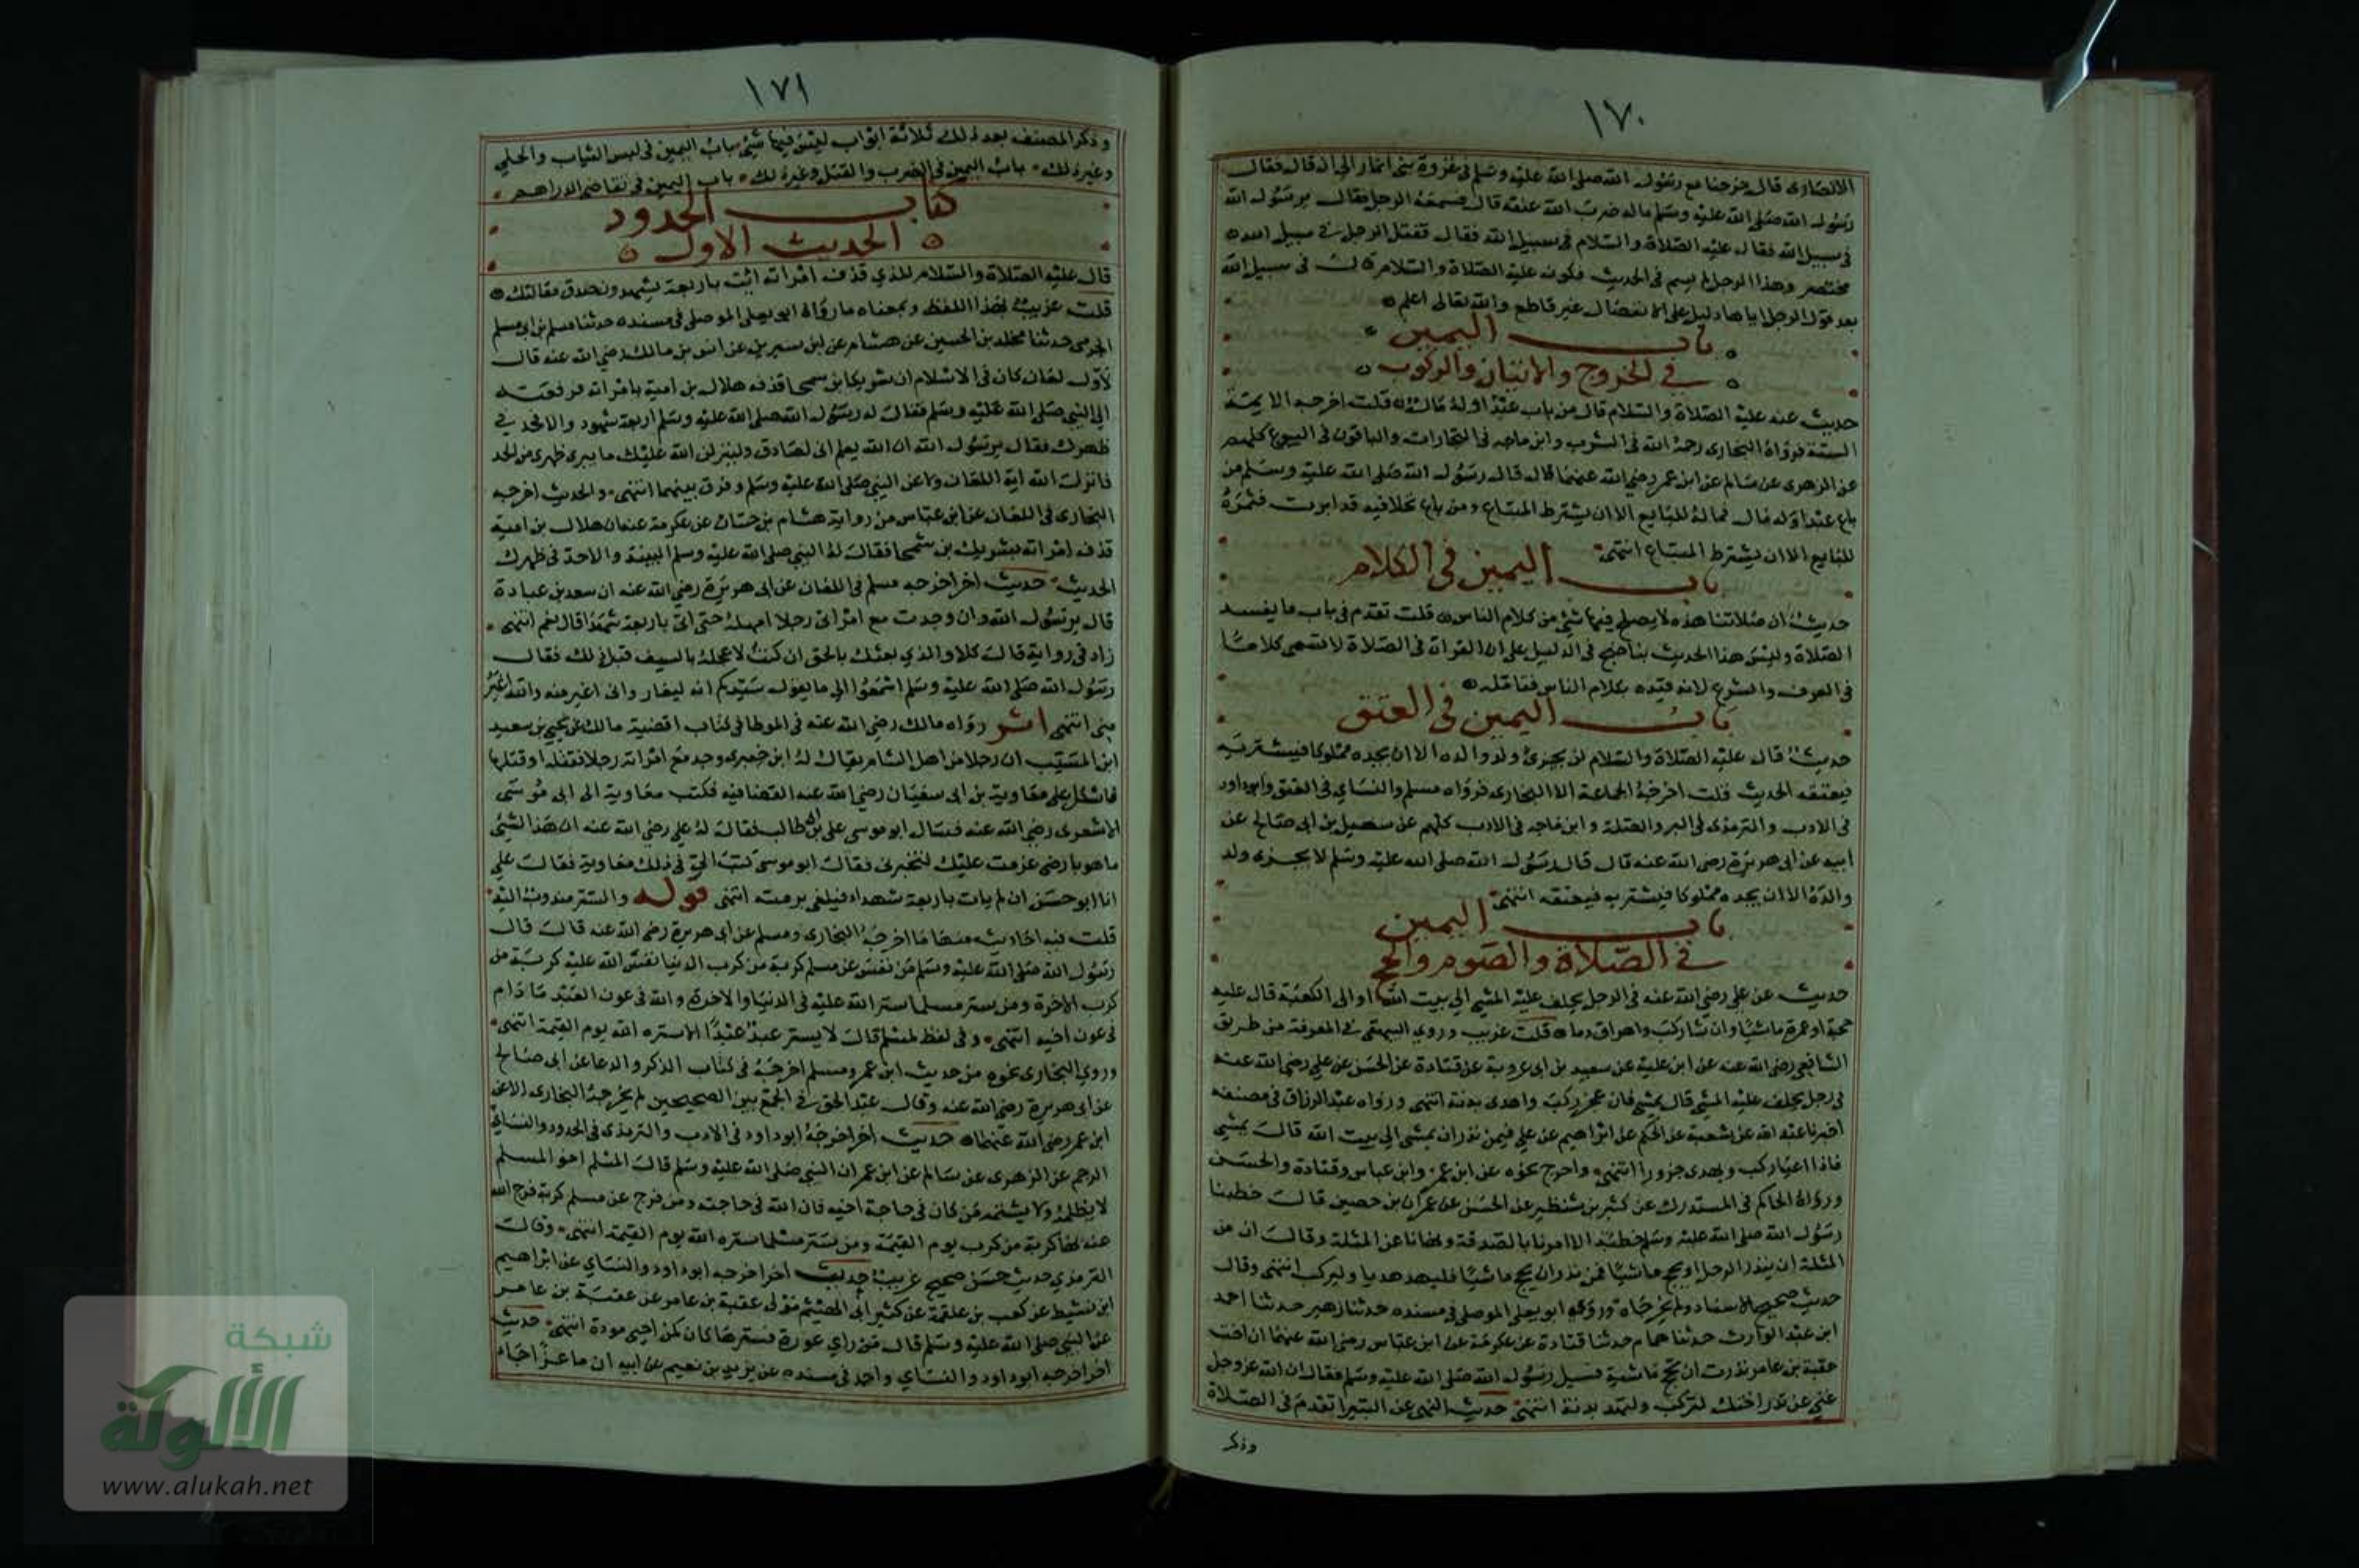 ١٧٠
الانصارى قال خرجنا مع رسول الله صلى الله عليه وسلم فى غزوة بنى انمار الى ان قال فقال
رسول الله صلى الله عليه وسلم ماله ضرب الله عنقه قال فسمعه الرجل فقال يرسول الله
فى سبيل الله فقال عليه الصلاة والسلام فى سبيل الله فقال فقتل الرجل فى سبيل الله
مختصر وهذا الرجل لم يسم فى الحديث فكونه عليه الصلاة والسلام قال فى سبيل الله
بعد قول الرجل اياها دليل على ان الانفصال غير قاطع والله تعالى اعلم
باب اليمين
في الخروج والاتيان والركوب
حديث عنه عليه الصلاة والسلام قال من باع عبدا وله مال قلت اخرجه الايمة
الستة فرواه البخارى رحمه الله فى الشرب وابن ماجه فى التجارات والباقون فى البيوع كلهم
عن الزهرى عن سالم عن ابن عمر رضي الله عنهما قال قال رسول الله صلى الله عليه وسلم من
باع عبدا وله مال فماله للبايع الا ان يشترط المبتاع ومن باع نخلا فيه قد ابرت فثمره
للبايع الا ان يشترط المبتاع انتهى
باب اليمين في الكلام
حديث ان صلاتنا هذه لا يصلح فيها شئ من كلام الناس قلت تقدم فى باب ما يفسد
الصلاة وليس هذا الحديث بناجح فى الدليل على ان القراة فى الصلاة لا تسمى كلاما
فى العرف والشرع لانه قيده بكلام الناس فتامله
باب اليمين في العتق
حديث قال عليه الصلاة والسلام لن يجزى ولد والده الا ان يجده مملوكا فيشتريه
فيعتقه الحديث قلت اخرجه الجماعة الا البخارى فرواه مسلم والنساي فى العتق وابوداود
فى الادب والترمذى فى البر والصلة وابن ماجه فى الادب كلهم عن سهيل بن ابى صالح عن
ابيه عن ابى هريرة رضى الله عنه قال قال رسول الله صلى الله عليه وسلم لا يجزى ولد
والده الا ان يجده مملوكا فيشتريه فيعتقه انتهى
باب اليمين
في الصلاة والصوم والحج
حديث عن على رضى الله عنه فى الرجل يحلف عليه المشي الى بيت الله او الى الكعبة قال عليه
حجة او عمرة ماشيا وان شا ركب واهراق دما قلت غريب وروى البيهقى فى المعرفة من طريق
الشافعى رضى الله عنه عن ابن علية عن سعيد بن ابى عروبة عن قتادة عن الحسن عن على رضى الله عنه
فى رجل يحلف عليه المشي قال يمشي فان عجز ركب واهدى بدنة انتهى ورواه عبد الرزاق فى مصنفه
اخبرنا عبد الله عن شعبة عن الحكم عن ابراهيم عن على فيمن نذر ان يمشى الى بيت الله قال يمشي
فاذا اعيا ركب ويهدى جزورا انتهى واخرج نحوه عن ابن عمر وابن عباس وقتادة والحسن
ورواه الحاكم فى المستدرك عن كثير بن شنظير عن الحسن عن عمران بن حصين قال خطبنا
رسول الله صلى الله عليه وسلم خطبة الا امرنا بالصدقة ونهانا عن المثلة وقال ان من
المثلة ان ينذر الرجل ان يحج ماشيا فمن نذر ان يحج ماشيا فليهد هديا وليركب انتهى وقال
حديث صحيح الاسناد ولم يخرجاه وروى ابو يعلى الموصلى فى مسنده حدثنا زهير حدثنا احمد
ابن عبد الوارث حدثنا همام حدثنا قتادة عن عكرمة عن ابن عباس رضى الله عنهما ان اخت
عقبة بن عامر نذرت ان تحج ماشية فسيل رسول الله صلى الله عليه وسلم فقال ان الله عز وجل
غني عن نذر اختك لتركب ولتهد بدنة انتهى حديث النهى عن البتيرا تقدم فى الصلاة
وذكر
١٧١
وذكر المصنف بعد ذلك ثلاثة ابواب ليس فيها شئ باب اليمين فى لبس الثياب والحلي
وغير ذلك باب اليمين فى الضرب والقتل وغير ذلك باب اليمين فى تقاضى الدراهم
كتاب الحدود
الحديث الاول
قال عليه الصلاة والسلام للذي قذف امراته ائت باربعة يشهدون صدق مقالتك
قلت غريب بهذا اللفظ وبمعناه ما رواه ابو يعلى الموصلى فى مسنده حدثنا مسلم بن ابى مسلم
الجرمى حدثنا مخلد بن الحسين عن هشام عن ابن سيرين عن انس بن مالك رضى الله عنه قال
لاول لعان كان فى الاسلام ان شريك بن سحما قذفه هلال بن امية بامراته فرفعته
الى النبي صلى الله عليه وسلم فقال له رسول الله صلى الله عليه وسلم اربعة شهود والا فحد في
ظهرك فقال يرسول الله ان الله يعلم انى لصادق ولينزلن الله عليك ما يبرى ظهرى من الحد
فانزل الله اية اللعان ولاعن النبي صلى الله عليه وسلم وفرق بينهما انتهى والحديث اخرجه
البخارى فى اللعان عن ابن عباس من رواية هشام بن حسان عن عكرمة عنه ان هلال بن امية
قذف امراته بشريك بن سحما فقال له النبي صلى الله عليه وسلم البينة والا حد فى ظهرك
الحديث حديث اخر اخرجه مسلم فى اللعان عن ابى هريرة رضى الله عنه ان سعد بن عبادة
قال يرسول الله وان وجدت مع امراتى رجلا امهله حتى اتى باربعة شهدا قال نعم انتهى
زاد فى رواية قال كلا والذي بعثك بالحق ان كنت لاعجله بالسيف قبل ذلك فقال
رسول الله صلى الله عليه وسلم اسمعوا الى ما يقول سيدكم انه ليغار وانى اغير منه والله اغير
منى انتهى اثر رواه مالك رضى الله عنه فى الموطا فى كتاب اقضية مالك عن يحيى بن سعيد
ابن المسيب ان رجلا من اهل الشام يقال له ابن خيبرى وجد مع امراته رجلا فقتله او قتلها
فاشكل على معاوية بن ابى سفيان رضى الله عنه القضا فيه فكتب معاوية الى ابى موسى
الاشعرى رضى الله عنه فسال ابو موسى على بن ابى طالب فقال له على رضى الله عنه ان هذا الشئ
ما هو بارضى عزمت عليك لتخبرنى فقال ابو موسى كتب الى فى ذلك معاوية فقال على
انا ابو حسن ان لم يات باربعة شهداء فليعط برمته انتهى قوله والستر مندوب اليه
قلت فيه احاديث منها ما اخرجه البخارى ومسلم عن ابى هريرة رضى الله عنه قال قال
رسول الله صلى الله عليه وسلم من نفس عن مسلم كربة من كرب الدنيا نفس الله عليه كربة من
كرب الاخرة ومن ستر مسلما ستر الله عليه فى الدنيا والاخرة والله فى عون العبد ما دام
فى عون اخيه انتهى وفى لفظ لمسلم قال لا يستر عبد عبدا الا ستره الله يوم القيمة انتهى
وروى البخارى نحوه من حديث ابن عمر ومسلم اخرجه فى كتاب الذكر والدعا عن ابى صالح
عن ابى هريرة رضى الله عنه وقال عبد الحق فى الجمع بين الصحيحين لم يخرجه البخارى الا عن
ابن عمر رضى الله عنهما حديث اخر اخرجه ابوداود فى الادب والترمذى فى الحدود والنسائي
الرجم عن الزهرى عن سالم عن ابن عمر ان النبي صلى الله عليه وسلم قال المسلم اخو المسلم
لا يظلمه ولا يشتمه من كان فى حاجة اخيه فان الله فى حاجته ومن فرج عن مسلم كربة فرج الله
عنه بها كربة من كرب يوم القيمة ومن ستر مسلما ستره الله يوم القيمة انتهى وقال
الترمذي حديث حسن صحيح غريب حديث اخر اخرجه ابوداود والنساي عن ابراهيم
ابن نشيط عن كعب بن علقمة عن كثير ابى الهيثم مولى عقبة بن عامر عن عقبة بن عامر
عن النبي صلى الله عليه وسلم قال من راي عورة فسترها كان كمن احيى موودة انتهى حديث
اخر اخرجه ابوداود والنساي واحمد فى مسنده عن يزيد بن نعيم عن ابيه ان ماعزا جاء
شبكة
الألوكة
www.alukah.net